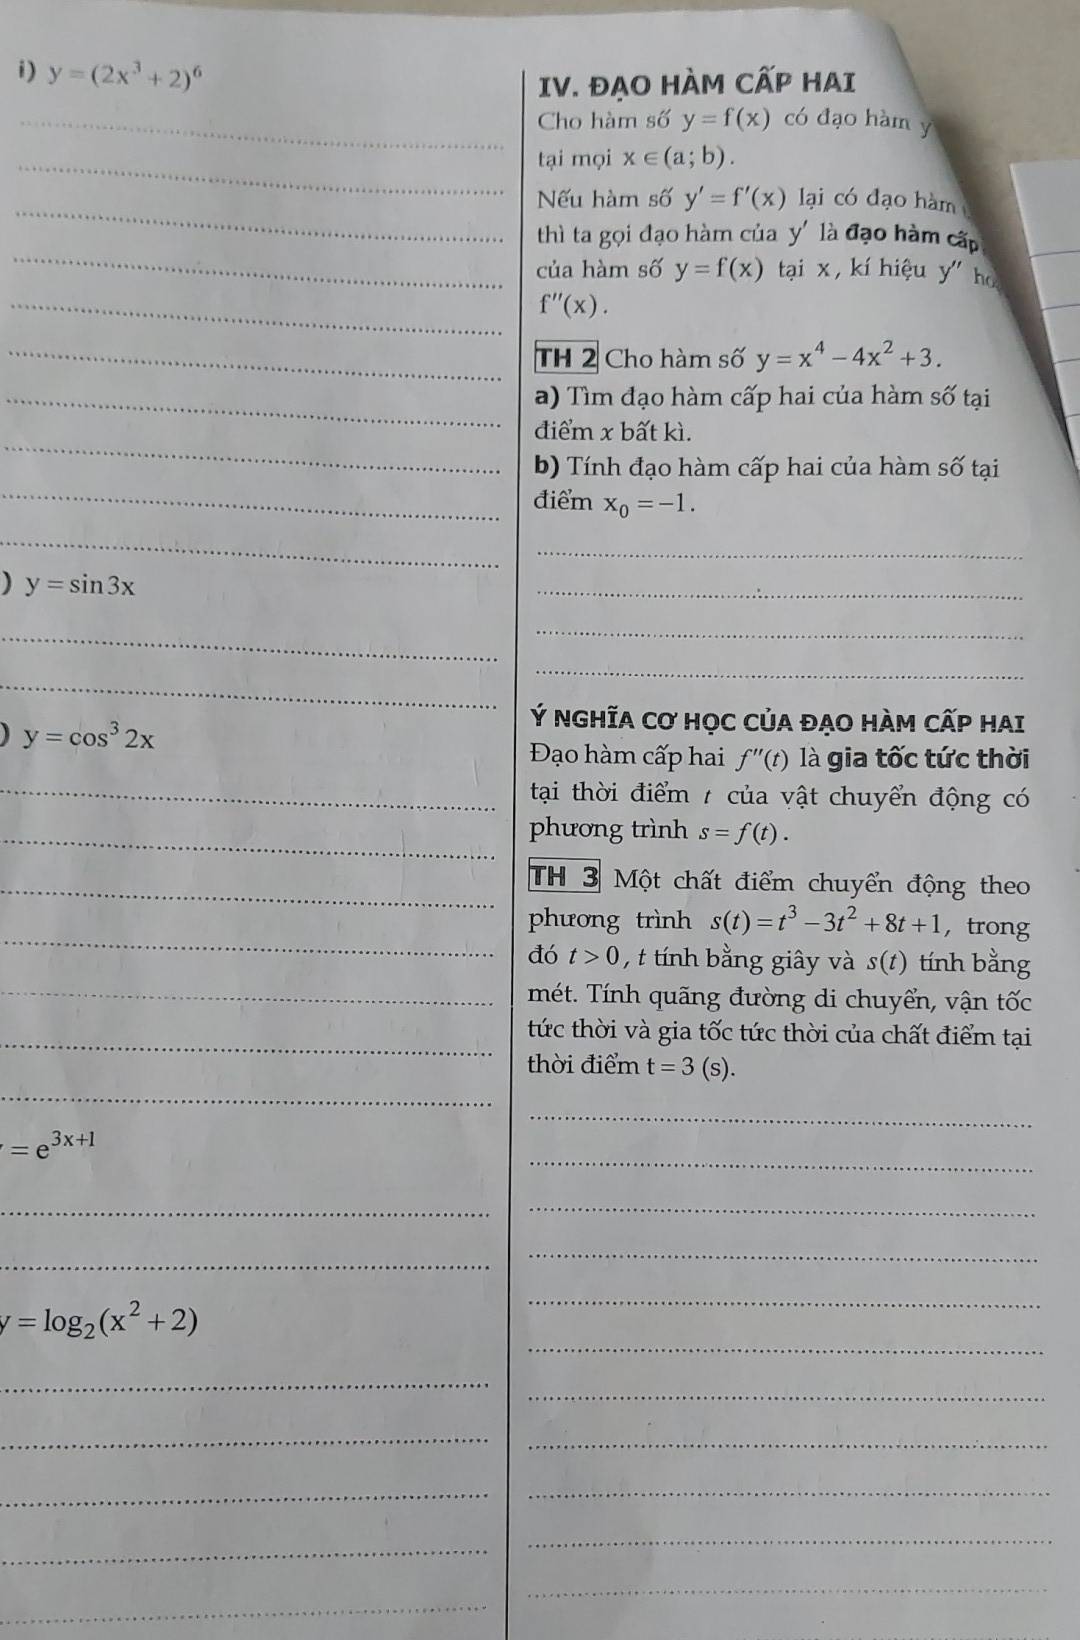 i) y = (2x³ + 2)⁶
) y = sin3x
) y = cos³ 2x
= e³ˣ⁺¹
y = log₂(x² + 2)
IV. ĐẠO HÀM CẤP HAI
Cho hàm số y = f(x) có đạo hàm y
tại mọi x ∈ (a; b).
Nếu hàm số y' = f'(x) lại có đạo hàm
thì ta gọi đạo hàm của y' là đạo hàm cấp
của hàm số y = f(x) tại x, kí hiệu y"
f"(x).
TH 2 Cho hàm số y = x⁴ − 4x² + 3.
a) Tìm đạo hàm cấp hai của hàm số tại
điểm x bất kì.
b) Tính đạo hàm cấp hai của hàm số tại
điểm x₀ = −1.
Ý NGHĨA CƠ HỌC CỦA ĐẠO HÀM CẤP HAI
Đạo hàm cấp hai f"(t) là gia tốc tức thời
tại thời điểm t của vật chuyển động có
phương trình s = f(t).
TH 3 Một chất điểm chuyển động theo
phương trình s(t) = t³ − 3t² + 8t + 1, trong
đó t > 0, t tính bằng giây và s(t) tính bằng
mét. Tính quãng đường di chuyển, vận tốc
tức thời và gia tốc tức thời của chất điểm tại
thời điểm t = 3 (s).